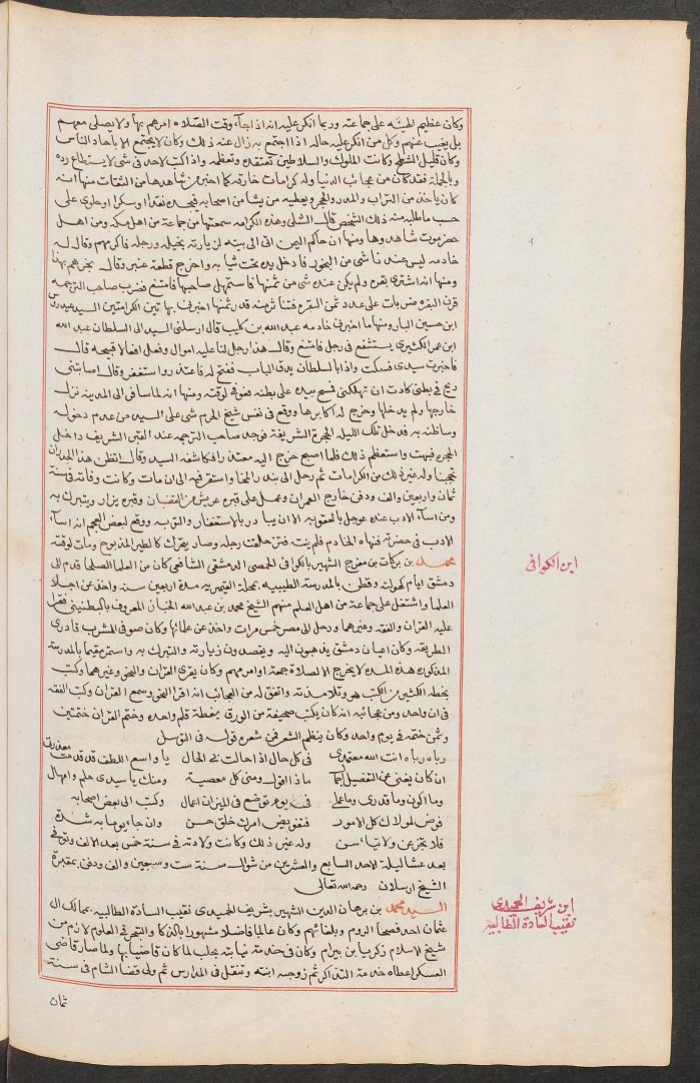 وكان عظيم الهيئه على جماعته وربما انكر عليه انه اذا جآء وقت الصلاه امرهم بها ولا يصلى معهم
بل يغيب عنهم وكل من انكر عليه حاله اذا اجتمع به زال عنه ذلك وكان لا يجتمع الا باحاد الناس
وكان قليل الشطح وكانت الملوك والسلاطين تعتقده وتعظمه واذا كتب لاحد فى شى لا يستطاع رده
وبالجملة فقد كان من عجائب الدنيا وله كرامات خارقه كما اخبر من شاهدها من الثقات منها انه
كان ياخذ من التراب والمدر والحجر ويعطيه من يشا من اصحابه فيجده نقدا او سكرا او حلوى على
حسب ما طلبه منه ذلك الشخص قال الشلى وهذه الكرامه سمعتها من جماعة من اهل مكه ومن اهل
حضرموت شاهدوها ومنها ان حاكم اليمن اتى الى بيته لزيارته بخيله ورجله فاكرمهم وقال له
خادمه ليس عندنا شى من البخور فادخل يده تحت ثيابه واخرج قطعة عنبر وقال بخرهم بهذا
ومنها انه اشترى بقره ولم يكن عنده شى من ثمنها فاستمهل صاحبها فامتنع فضرب صاحب الترجمه
قرن البقره ضربات على عدد ثمن البقره فتناثر منه قدر ثمنها اخبرنى بهاتين الكرامتين السيد عيدروس
ابن حسين البار ومنها ما اخبرنى خادمه عبد الله بن كليب قال ارسلنى السيد الى السلطان عبد الله
ابن عمر الكثيرى يستشفع فى رجل فامتنع وقال هذا رجل لنا عليه اموال وفعل افعالا قبيحه قال
فاخبرت سيدى فسكت واذا بالسلطان يدق الباب ففتح له فاعتذر واستغفر وقال اصابتنى
ريح فى بطنى كادت ان تهلكنى فمسح بيده على بطنه فعوفى لوقته ومنها انه لما سافر الى المدينه نزل
خارجها ولم يدخلها وخرج له اكابرها ووقع فى نفس شيخ الحرم شى على السيد من عدم دخوله
وساء ظنه به فدخل تلك الليله الحجرة الشريفة فوجد صاحب الترجمه عند القبر الشريف داخل
الحجره فبهت واستعظم ذلك فلما اصبح خرج اليه معتذرا فكاشفه السيد وقال اتظن هذا الجدران
تحجبنا وله غير ذلك من الكرامات ثم رحل الى بندر المخا واستقر فيه الى ان مات وكانت وفاته فى سنة
ثمان واربعين والف ودفن خارج العمران وعمل على قبره عريش من القضبان وقبره يزار ويتبرك به
ومن اساء الادب عنده عوجل بالعقوبه الا ان يبادر بالاستغفار والتوبه ووقع لبعض العجم انه اساء
الادب فى حضرته فنهاه الخادم فلم ينته فتزحلقت رجله وصار يتحرك كالطير المذبوح ومات لوقته
محمد بن بركات بن مفرج الشهير بالكوافى الحمصى الدمشقى الشافعى كان من العلما الصلحا قدم الى
دمشق ايام كهولته وقطن بالمدرسة الطيبيه بمحلة القيمريه مدة اربعين سنه واخذ عن اجلا
العلما واشتغل على جماعة من اهل العلم منهم الشيخ محمد بن عبد الله الخباز المعروف بالبطنينى فقرا
عليه القران والفقه وغيرهما ورحل الى مصر خمس مرات واخذ عن علمائها وكان صوفى المشرب قادرى
الطريقه وكان اعيان دمشق يذهبون اليه ويقصدون زيارته والتبرك به واستمر مقيما بالمدرسة
المذكوره هذه المده لا يخرج الا لصلاة جمعة او امر مهم وكان يقرى القران والنحو وغيرهما وكتب
بخطه الكثير من الكتب هو وتلامذته واتفق له من العجائب انه اقرا النحو وسمع القران وكتب الفقه
فى ان واحد ومن عجائبه انه كان يكتب صحيفة من الورق بغطة قلم واحده وختم القران ختمتين
وثمن ختمه فى يوم واحد وكان ينظم الشعر فمن شعره قوله فى التوسل
رباه رباه انت الله معتمدى فى كل حال اذا حالت بى الحال يا واسع اللطف قد قدمت معذرتى
ان كان يغنى عن التفصيل اجمال ماذا اقول ومنى كل معصية ومنك يا سيدى حلم وامهال
وما اكون وما قدرى وما عملى فى يوم توضع فى الميزان اعمال وكتب الى بعض اصحابه
فوض لمولاك كل الامور فتفويض امرك خلق حسن وان جاء يوما به شدة
فلا تجزعن ولا تياسن وله غير ذلك وكانت ولادته فى سنة خمس بعد الالف وتوفى
بعد عشا ليلة الاحد السابع والعشرين من شوال سنة ست وسبعين والف ودفن بمقبرة
الشيخ ارسلان رحمه الله تعالى
السيد محمد بن برهان الدين الشهير بشريف الحميدى نقيب السادة الطالبيه بممالك ال
عثمان احد فصحآ الروم وبلغائهم وكان عالما فاضلا مشهورا بالذكا والتبحر فى العلوم لازم من
شيخ الاسلام زكريا بن بيرام وكان فى خدمة نيابته بحلب لما كان قاضيا بها ولما صار قاضى
العسكر اعطاه خدمة التذاكر ثم زوجه ابنته وتنقل فى المدارس ثم ولى قضا الشام فى سنة
ثمان
ابن الكوافى
ابن شريف الحميدى
نقيب السادة الطالبية